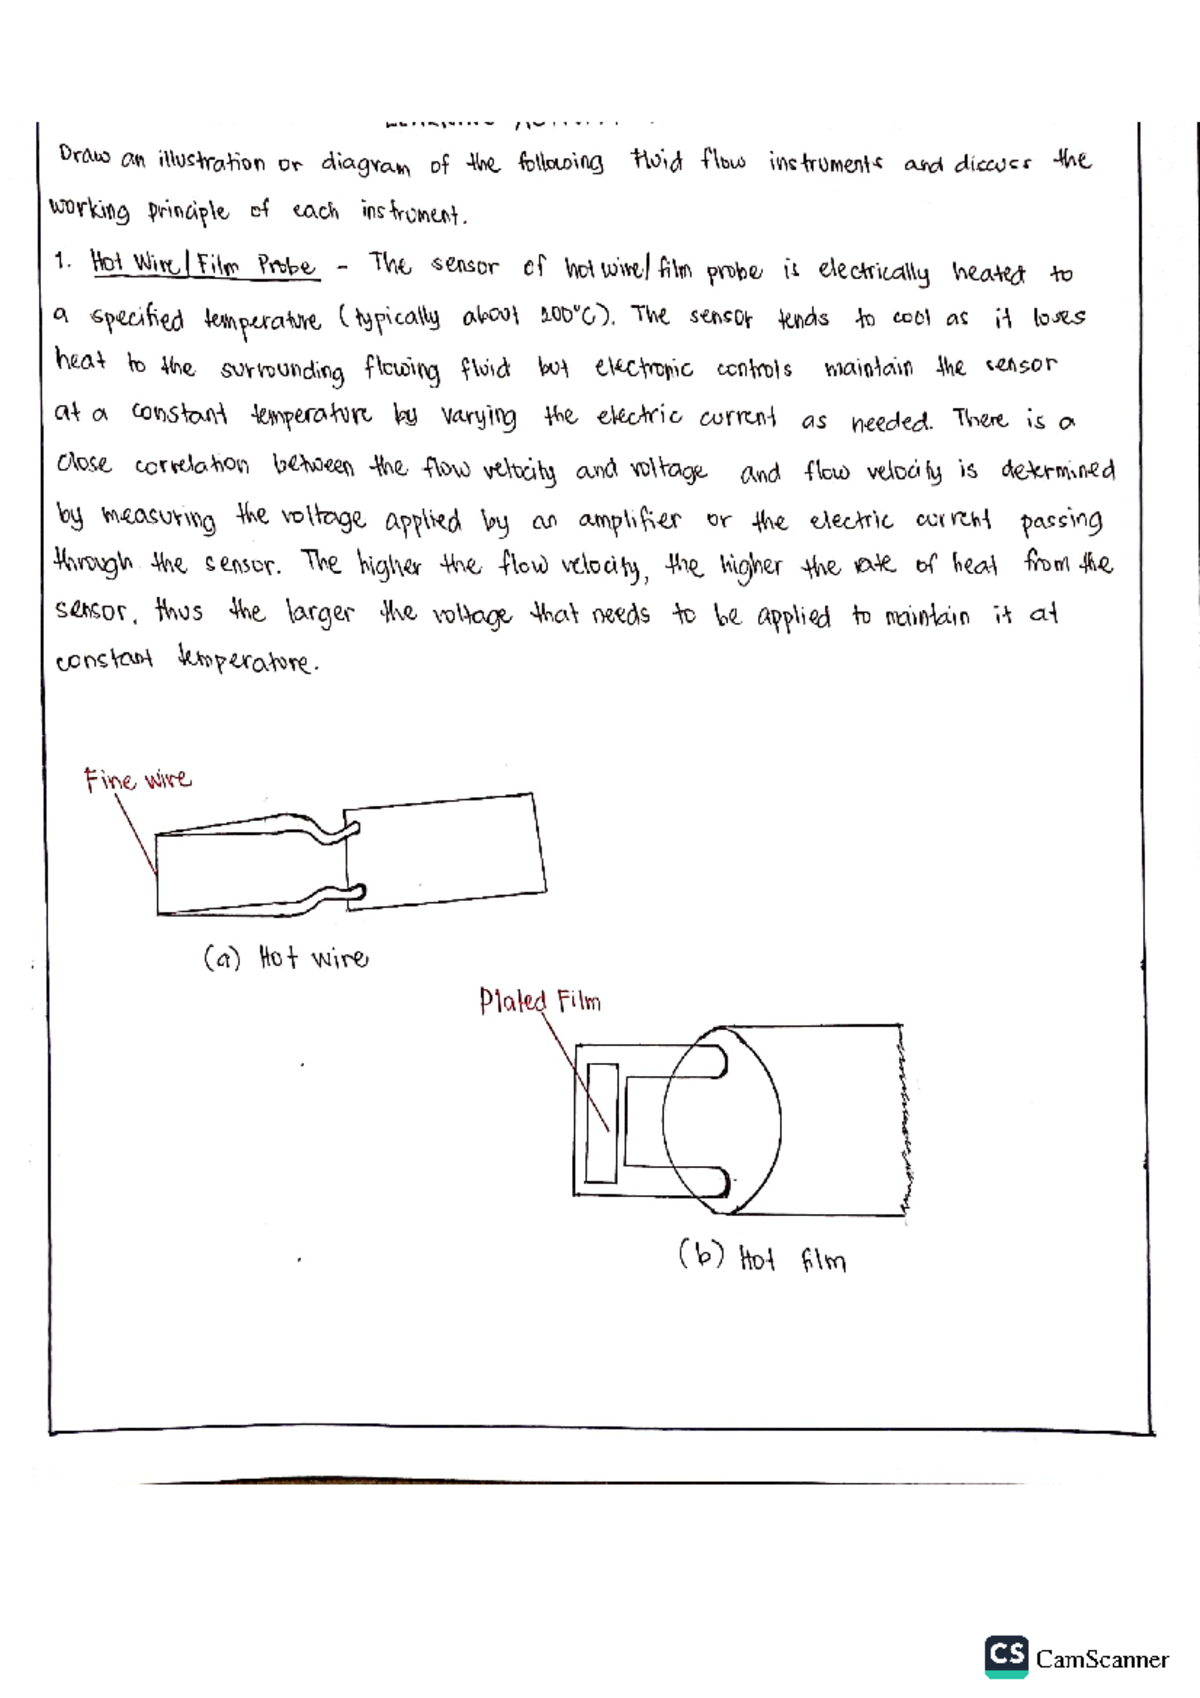 Draw an illustration or diagram of the following fluid flow instruments and discuss the
working principle of each instrument.
1. Hot Wire/Film Probe - The sensor of hot wire/film probe is electrically heated to
a specified temperature (typically about 200°C). The sensor tends to cool as it loses
heat to the surrounding flowing fluid but electronic controls maintain the sensor
at a constant temperature by varying the electric current as needed. There is a
close correlation between the flow velocity and voltage and flow velocity is determined
by measuring the voltage applied by an amplifier or the electric current passing
through the sensor. The higher the flow velocity, the higher the rate of heat from the
sensor, thus the larger the voltage that needs to be applied to maintain it at
constant temperature.
Fine wire
(a) Hot wire
Plated Film
(b) Hot film
CS CamScanner